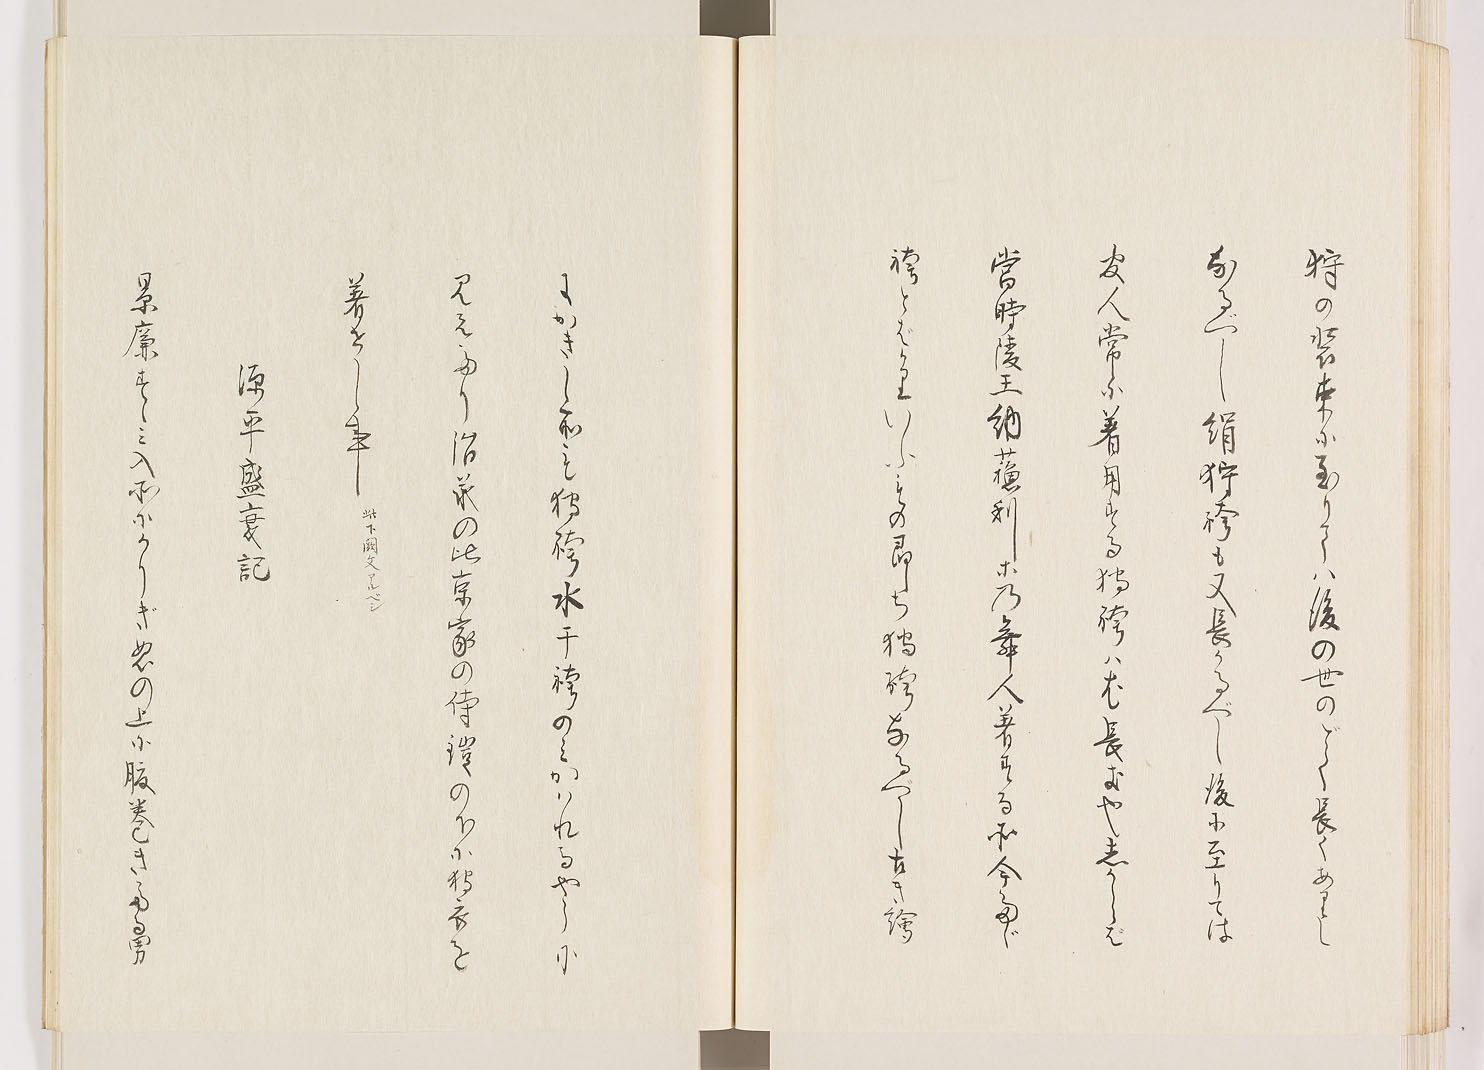 狩の装束に至りてハ後の世のごとく長くありし
なるべし絹狩袴も又長かるべし後に至りては
官人常に着用する狩袴ハむ長むや志からば
當時陵王納蘇利等乃舞人着する所今に
袴とばかりいふもの即ち狩袴なるべし古き繪
にかきし所も狩袴水干袴のミかハれるやうに
見えたり治承の比京家の侍鎧の下に狩衣を
着せし事
此下闕文アルベシ
源平盛衰記
景廉すゝミ入所にかりぎぬの上に腹巻きたる男